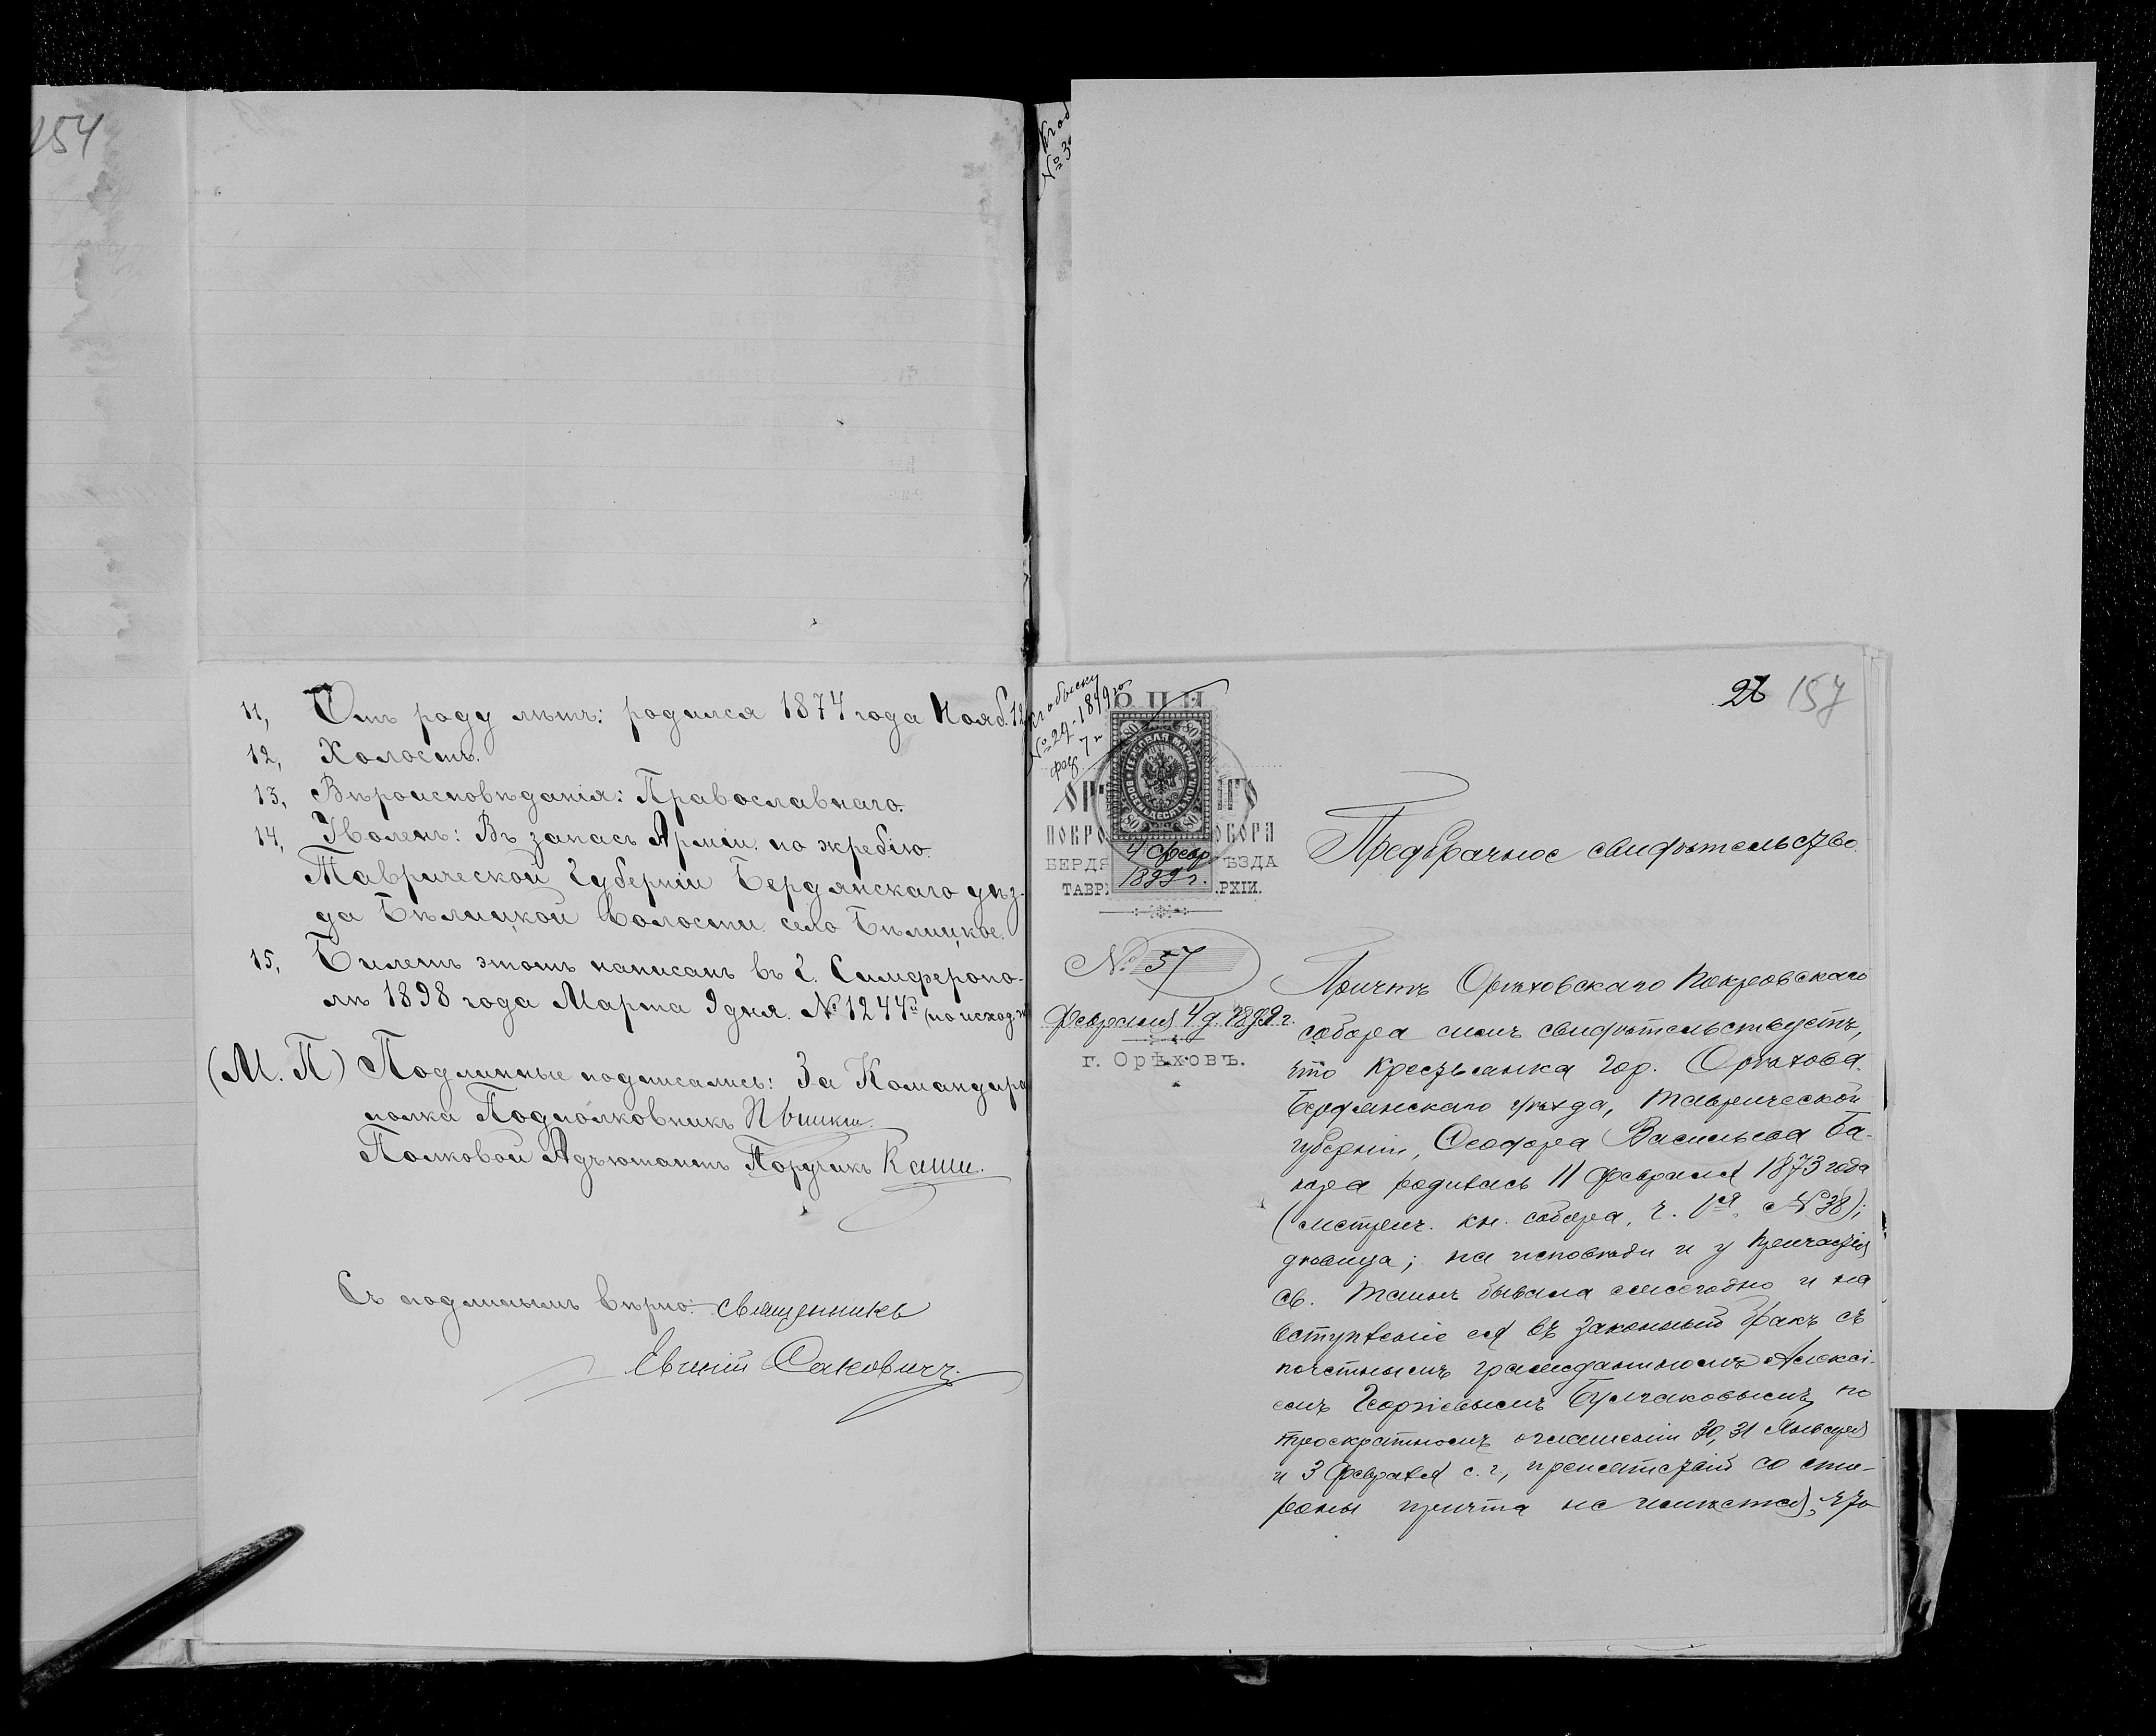 154
11, Отъ роду лѣтъ: родился 1874 года Нояб. 12
12, Холостъ.
13, Вѣроисповѣданія: Православнаго.
14, Уволенъ: Въ запасъ Арміи по жребію.
Таврической Губерніи Бердянскаго уѣз-
да Бѣлицкой волости село Бѣлицкое.
15, Билетъ этотъ написанъ въ г. Симферопо-
лѣ 1898 года Марта 9 дня. № 1244й (по исход.
(М. П) Подлинные подписались: За Командира
полка Подполковникъ
Полковой Адъютантъ Поручикъ
Съ подлиннымъ вѣрно: священникъ
Евгеній Сакович
27 157
къ обыску
№ 29 - 1899 го
80 80
ГЕРБОВАЯ МАРКА
80 80
ПОКРО ОБОРА
БЕРДЯ ѢЗДА
ТАВР. РХІИ.
4 Февр
1899 г.
№ 57
Февраля 4 д. 1899 г.
г. Орѣховъ.
Предбрачное свидѣтельство.
Причтъ Орѣховскаго Покровскаго
собора симъ свидѣтельствуетъ,
что крестьянка гор. Орѣхова
Бердянскаго уѣзда, Таврической
губерніи, Ѳеодора Васильева Ба-
кора родилась 11 Февраля 1873 года
(метрич. кн. собора, ч. 1ая, № 38);
дѣвица; на исповѣди и у причастія
св. Таинъ бывала ежегодно и на
вступленіе ея въ законный бракъ съ
почетнымъ гражданиномъ Алексі-
емъ Георгіевымъ Булгаковымъ, по
троекратномъ оглашеніи 30, 31 Января
и 3 Февраля с. г., препятствій со сто-
роны причта не имѣется, что